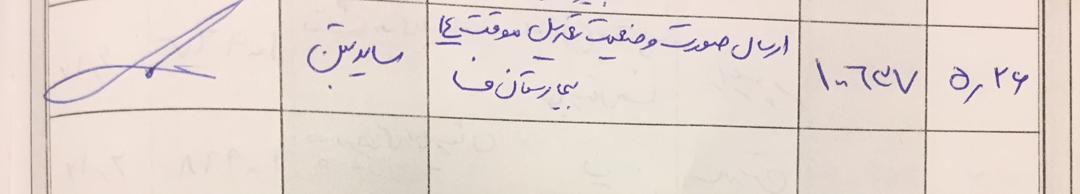 ۵٫۲۶
۱۰۶۳۷
ارسال صورت وضعیت تعدیل موقت ۱۴
بیمارستان فسا